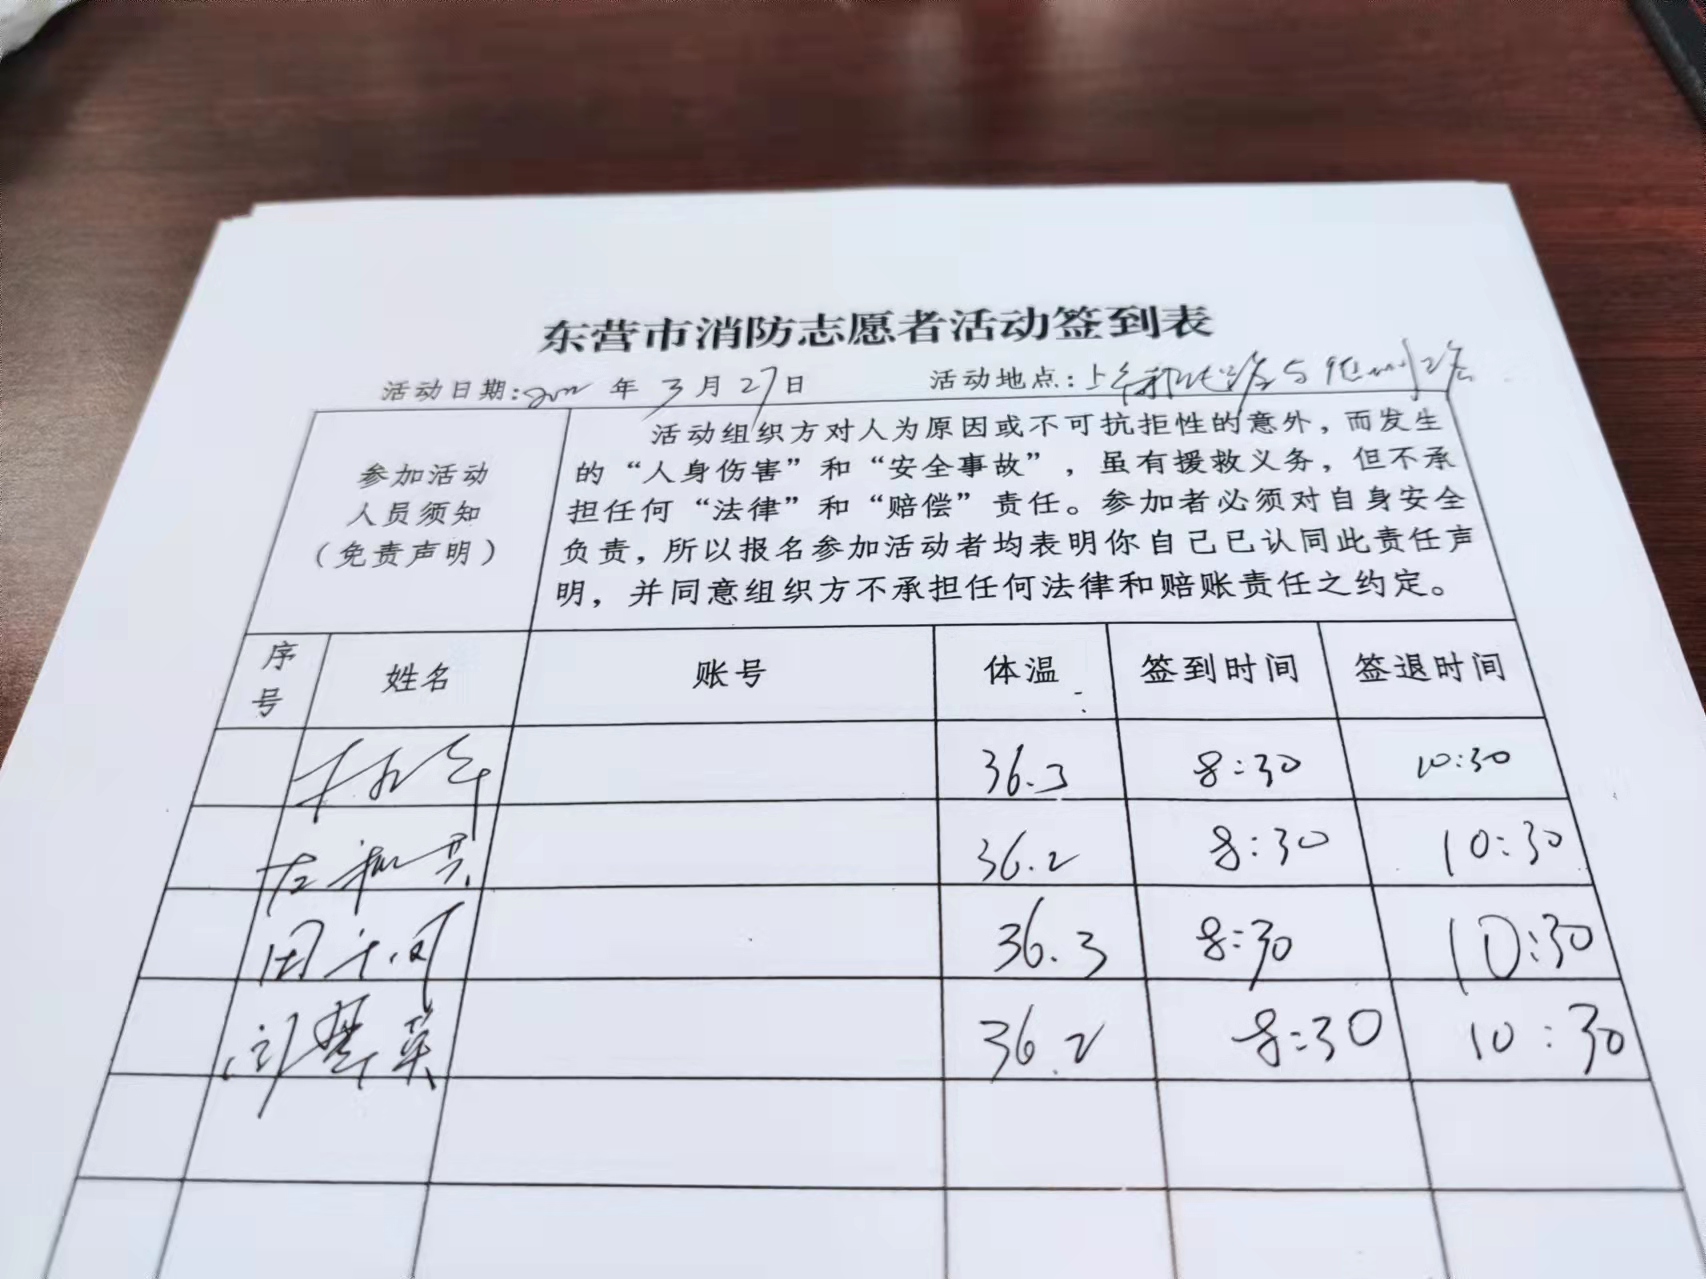 东营市消防志愿者活动签到表
活动日期: 年 3 月 27 日 活动地点:
参加活动
人员须知
（免责声明）
活动组织方对人为原因或不可抗拒性的意外，而发生
的“人身伤害”和“安全事故”，虽有援救义务，但不承
担任何“法律”和“赔偿”责任。参加者必须对自身安全
负责，所以报名参加活动者均表明你自己已认同此责任声
明，并同意组织方不承担任何法律和赔账责任之约定。
序号 姓名 账号 体温 签到时间 签退时间
36.3 8:30 10:30
36.2 8:30 10:30
36.3 8:30 10:30
36.2 8:30 10:30